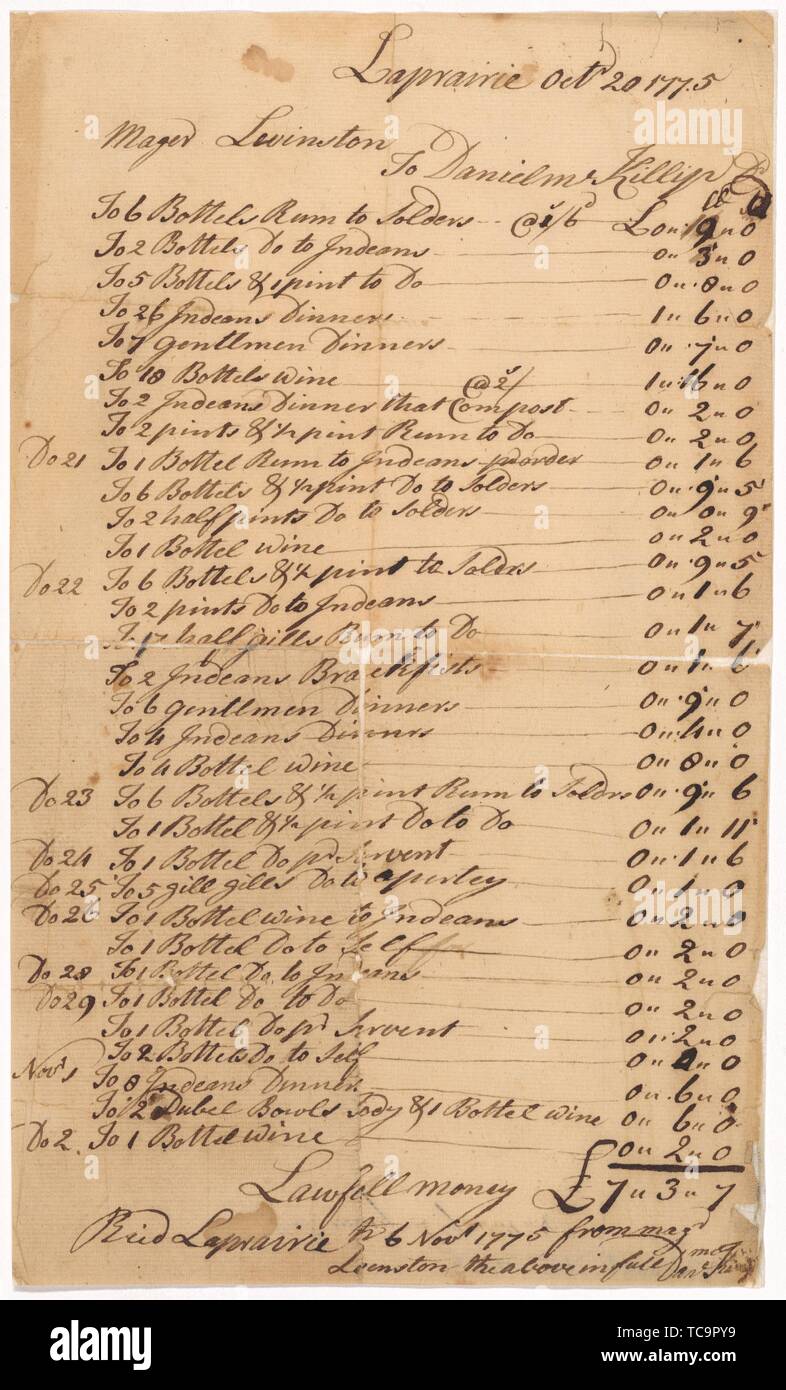 Laprairie Octr 20 1775
Mager Levinston
To Daniel Mc Killip Dr
To 6 Bottels Rum to Solders @ 1/6 L 0 " 9 " 0
To 2 Bottels Do to Indeans 0 " 3 " 0
To 5 Bottels & 1 pint to Do 0 " 8 " 0
To 26 Indeans Dinners 1 " 6 " 0
To 7 gentlmen Dinners 0 " 7 " 0
To 18 Bottels wine @ 2/ 1 " 16 " 0
To 2 Indeans Dinner that Compost 0 " 2 " 0
To 2 pints & ½ pint Rum to Do 0 " 2 " 0
Do 21 To 1 Bottel Rum to Indeans pr order 0 " 1 " 6
To 6 Bottels & ½ pint Do to Solders 0 " 9 " 5
To 2 half pints Do to Solders 0 " 0 " 9
To 1 Bottel wine 0 " 2 " 0
Do 22 To 6 Bottels & ½ pint to Solders 0 " 9 " 5
To 2 pints Do to Indeans 0 " 1 " 6
To 17 half gills Rum to Do 0 " 1 " 7
To 2 Indeans Brackfists 0 " 1 " 6
To 6 gentlmen Dinners 0 " 9 " 0
To 4 Indeans Dinnrs 0 " 4 " 0
To 4 Bottel wine 0 " 8 " 0
Do 23 To 6 Bottels & ½ pint Rum to Soldrs 0 " 9 " 6
To 1 Bottel & ½ pint Do to Do 0 " 1 " 11
Do 24 To 1 Bottel Do pr Servent 0 " 1 " 6
Do 25 To 5 gill gills Do to a perley 0 " 1 " 0
Do 26 To 1 Bottel wine to Indeans 0 " 2 " 0
To 1 Bottel Do to Self 0 " 2 " 0
Do 28 To 1 Bottel Do to Indeans 0 " 2 " 0
Do 29 To 1 Bottel Do to Do 0 " 2 " 0
To 1 Bottel Do pr Servent 0 " 2 " 0
To 2 Bottels Do to Self 0 " 4 " 0
Novr 1 To 8 Indeans Dinner 0 " 6 " 0
To 2 Dubel Bowls Tody & 1 Bottel wine 0 " 6 " 0
Do 2 To 1 Bottel wine 0 " 2 " 0
Lawfell money £ 7 " 3 " 7
Ricd Laprairie 6 Novr 1775 from magr
Levinston the above in full
alamy
Image ID: TC9PY9
www.alamy.com